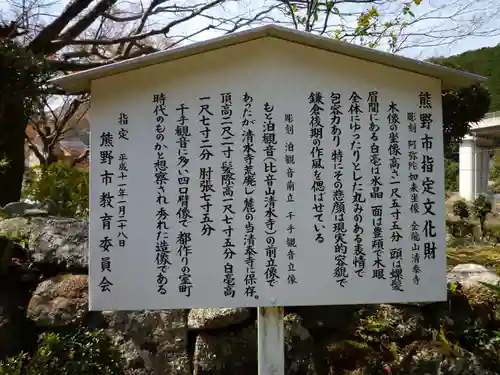 熊野市指定文化財
彫刻 阿弥陀如来坐像 金龍山清泰寺
木像の坐像高さ一尺五寸五分 頭は螺髪
眉間にある白毫は水晶 面は豊頬で木眼
全体にゆったりとした丸みのある表情で
包容力があり 特にその悲顔は現実的容貌で
鎌倉後期の作風を偲ばせている
彫刻 泊観音前立 千手観音立像
もと泊観音(比音山清水寺)の前立像で
あったが清水寺荒廃し麓の当清泰寺に祀る
頂高さ一尺二寸 髪際高一尺七寸五分 白毫高
一尺七寸二分 肘張七寸五分
千手観音に多い四臂像で 都作りの室町
時代のものかと思察され秀れた造像である
指定 平成十一年一月二十八日
熊野市教育委員会